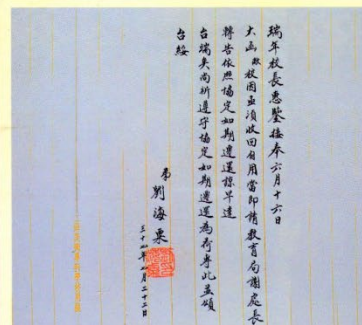 瑞年校長惠鑒接奉六月十六日
大函敝校因亟須收回自用當即請教育局謝處長
轉告依照協定如期遷還諒早達
台端矣尚祈遵守協定如期遷還為荷專此並頌
台綏
弟
劉海粟
三十七年六月二十二日